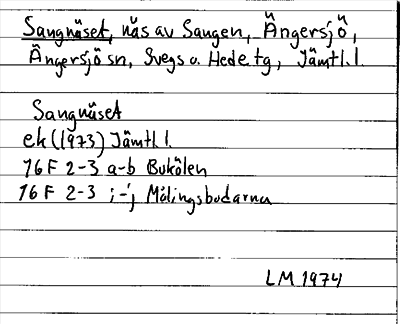 Sangnäset, näs av Sangen, Ängersjö,
Ängersjö sn, Svegs o. Hede tg, Jämtl.l.
Sangnäset
ek (1973) Jämtl l.
16 F 2-3 a-b Bukölen
16 F 2-3 i-j Målingsbodarna
LM 1974